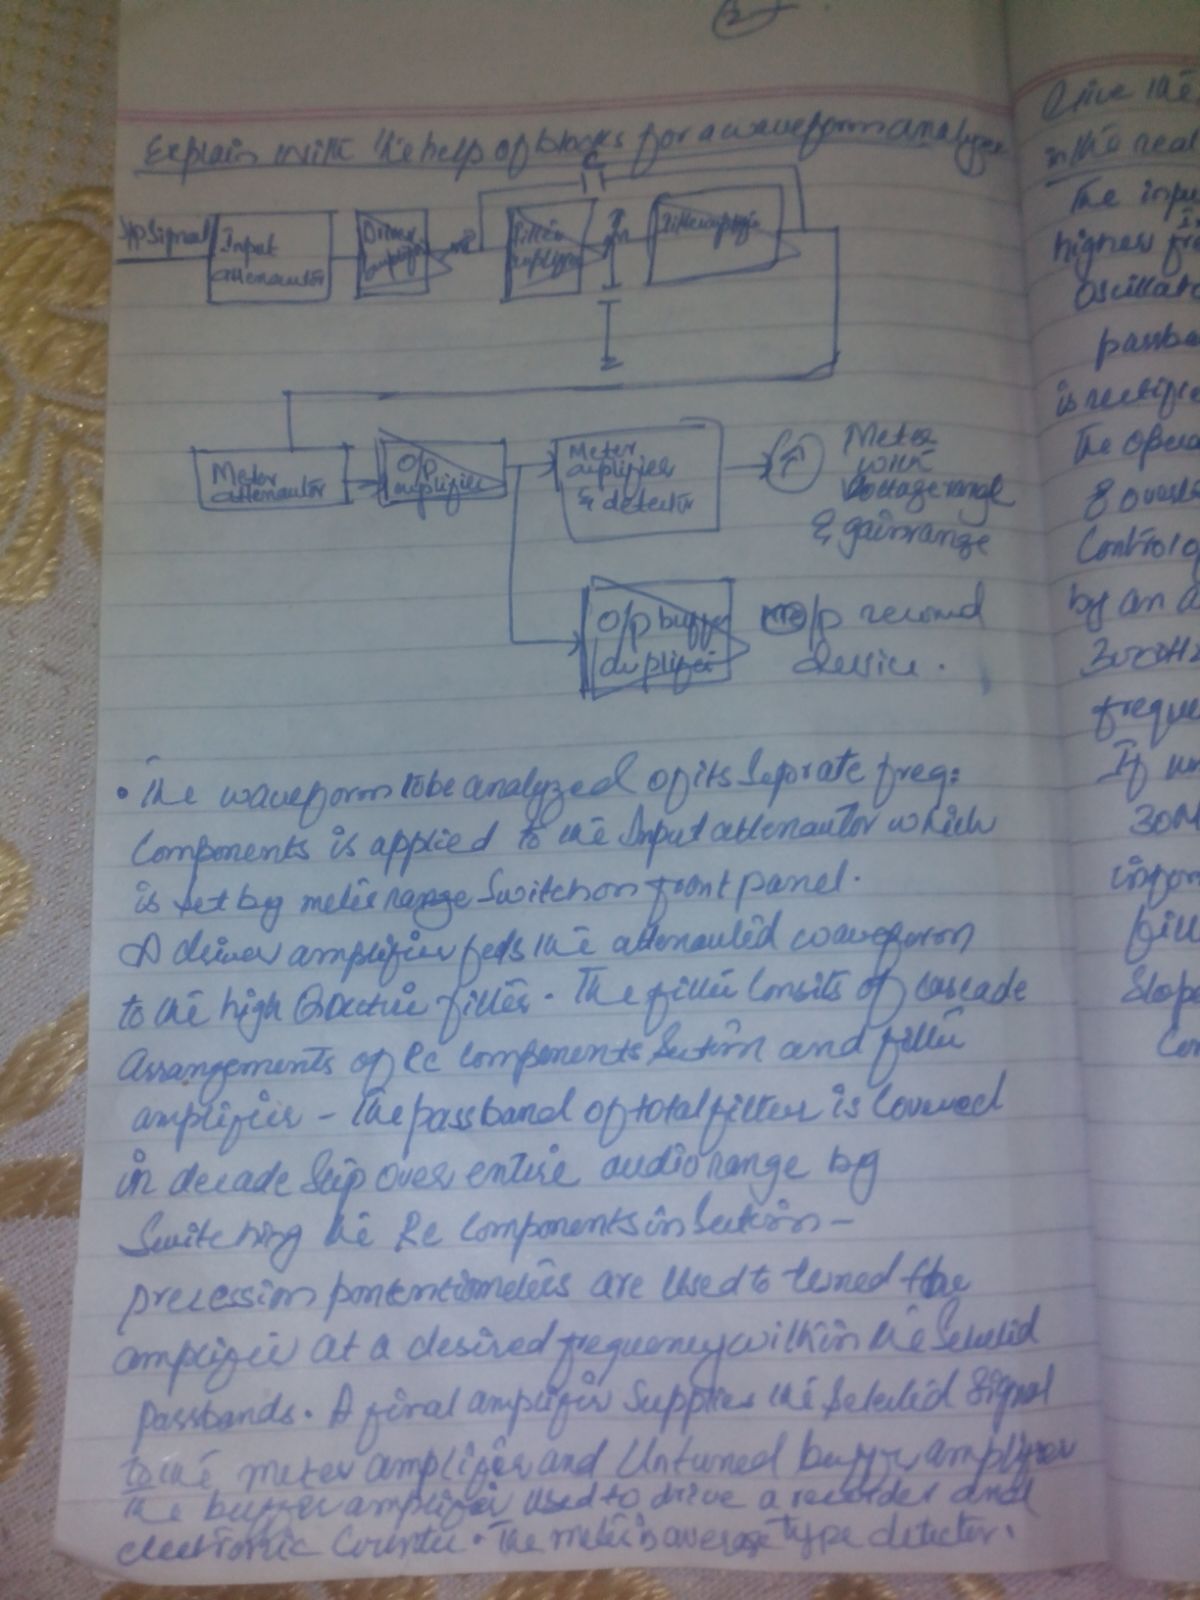 2
Explain with the help of blocks for a waveform analyzer
C
I/p Signal
Input
attenautor
Driver
amplifier
Filter
amplifier
Filter amplifier
Meter
attenautor
O/p
amplifier
Meter
amplifier
& detector
Meter
with
Voltage range
& gain range
O/p buffer
amplifier
O/p record
device.
• The waveform to be analyzed of its Seprate freq:
Components is applied to the Input attenautor which
is set by meter range Switch on front panel.
A driver amplifier feds the attenauted waveform
to the high Q active filter. The filter Consits of cascade
arrangements of Rc Components Section and filter
amplifier - The passband of total filter is Covered
in decade Step over entire audio range by
Switching the Rc Components in Section -
precession pontentiometers are Used to tuned the
amplifier at a desired frequency within the Selected
Passbands. A final amplifier Supplies the Selected Signal
to the meter amplifier and Untuned buffer amplifier
The buffer amplifier Used to drive a recorder and
electronic Counter. The meter is average type detector.
Give the
in the real
The inpu
higher fre
Oscillato
passba
is rectifie
The opera
8 over
Control o
by an a
frequen
If
30M
infor
fill
Slope
Con